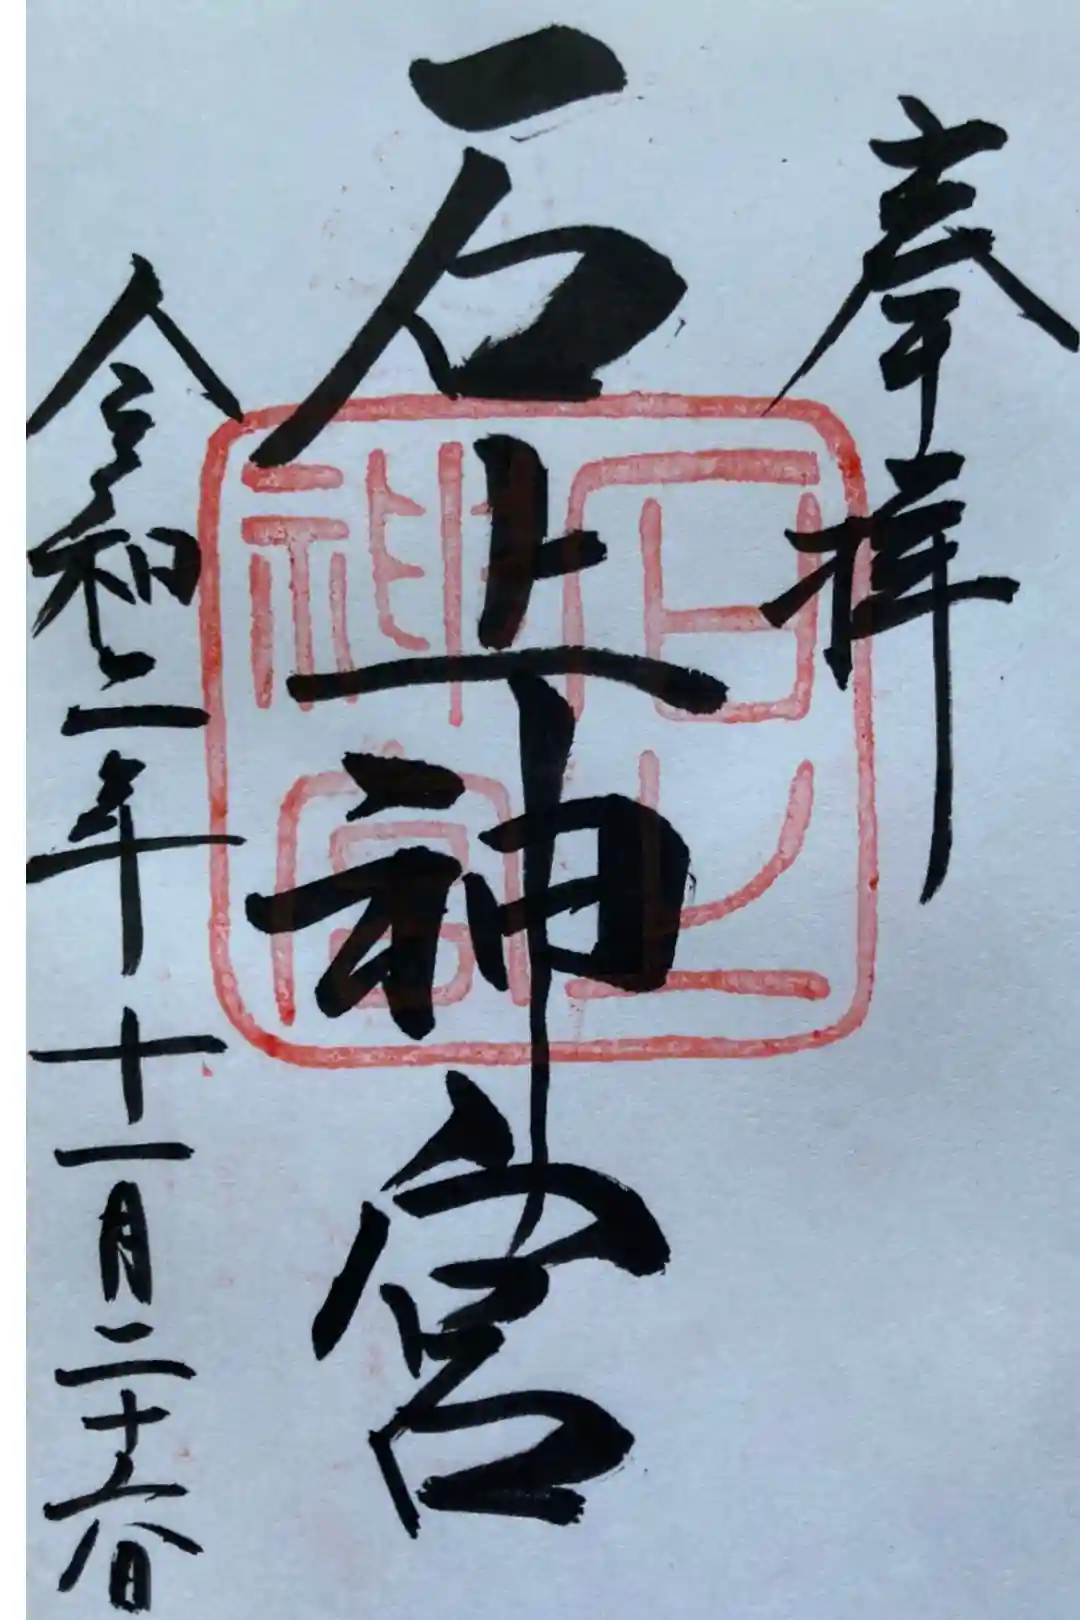 奉拝
石上神宮
令和二年十一月二十六日
石上神宮